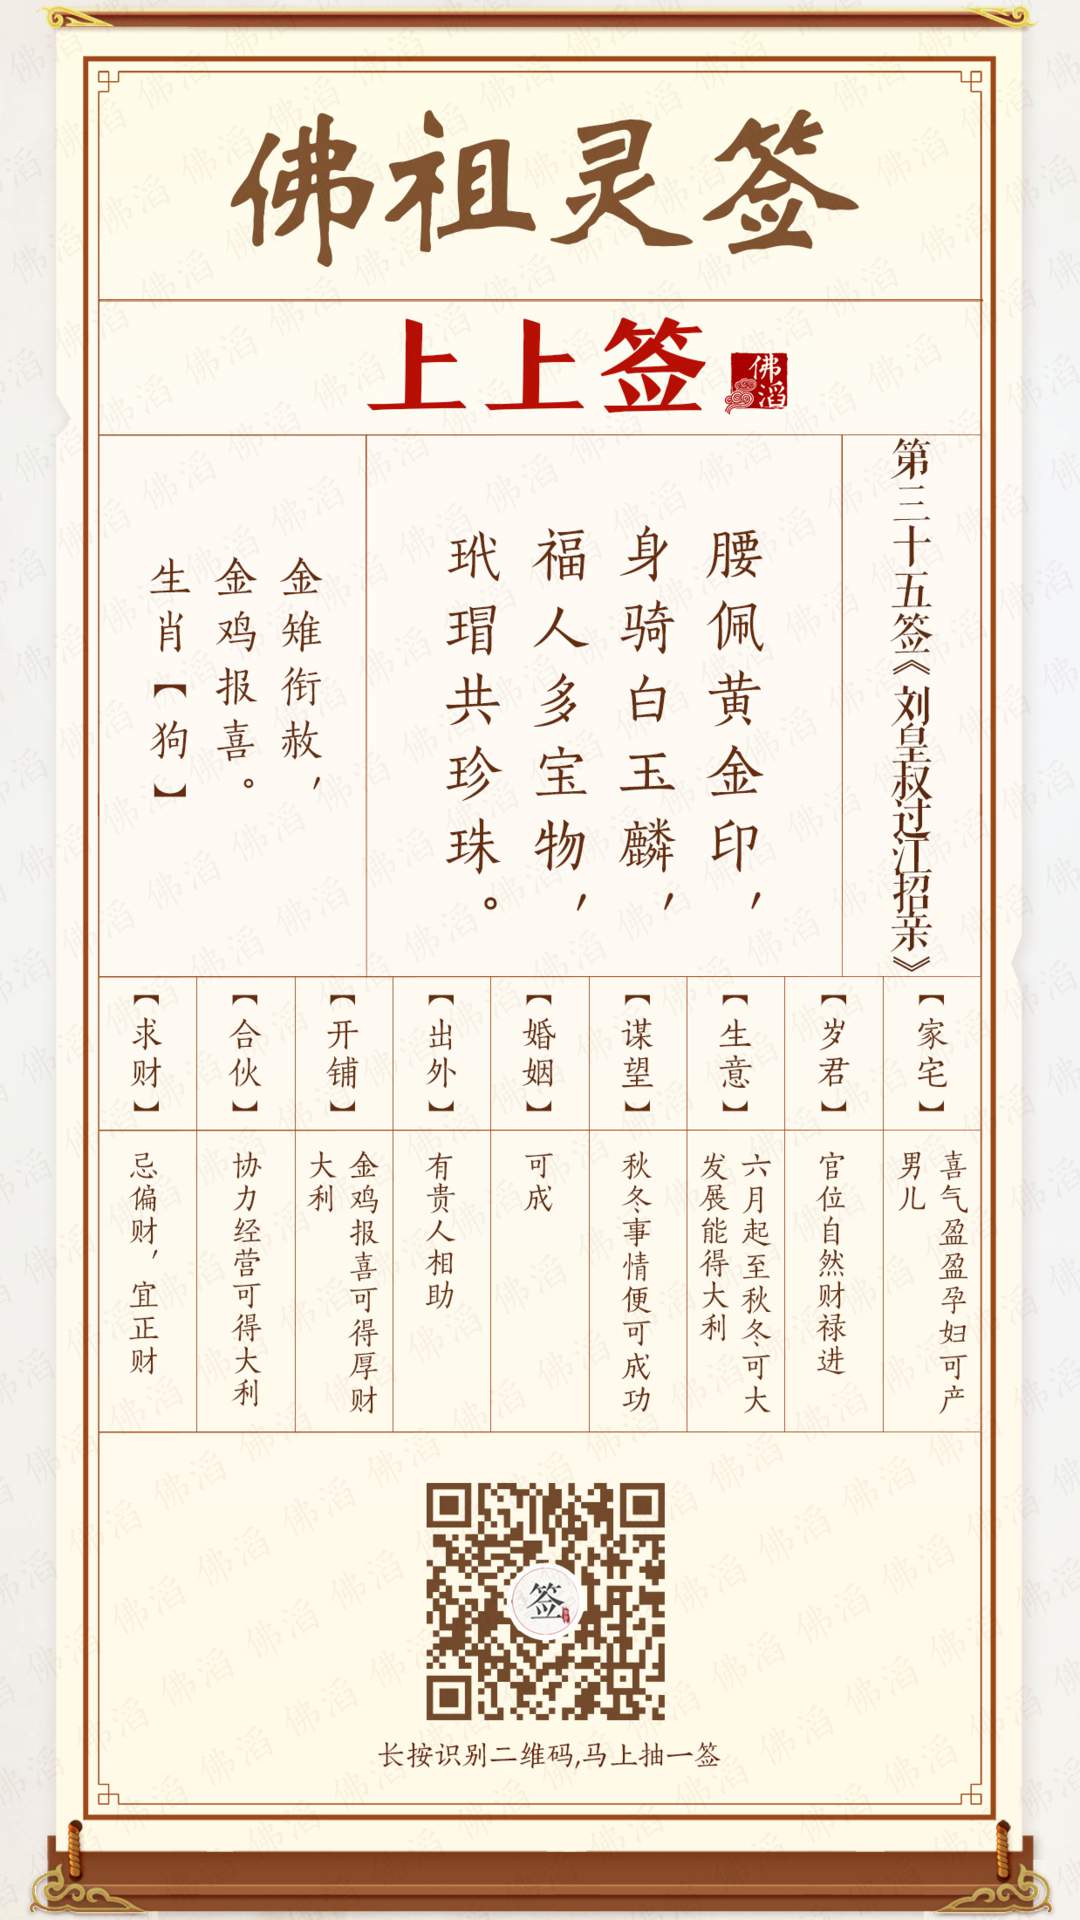 佛祖灵签
上上签
佛滔
第三十五签《刘皇叔过江招亲》
腰佩黄金印，
身骑白玉麟，
福人多宝物，
玳瑁共珍珠。
金雉衔赦，
金鸡报喜。
生肖【狗】
【家宅】
喜气盈盈孕妇可产
男儿
【岁君】
官位自然财禄进
【生意】
六月起至秋冬可大
发展能得大利
【谋望】
秋冬事情便可成功
【婚姻】
可成
【出外】
有贵人相助
【开铺】
金鸡报喜可得厚财
大利
【合伙】
协力经营可得大利
【求财】
忌偏财，宜正财
签
长按识别二维码,马上抽一签